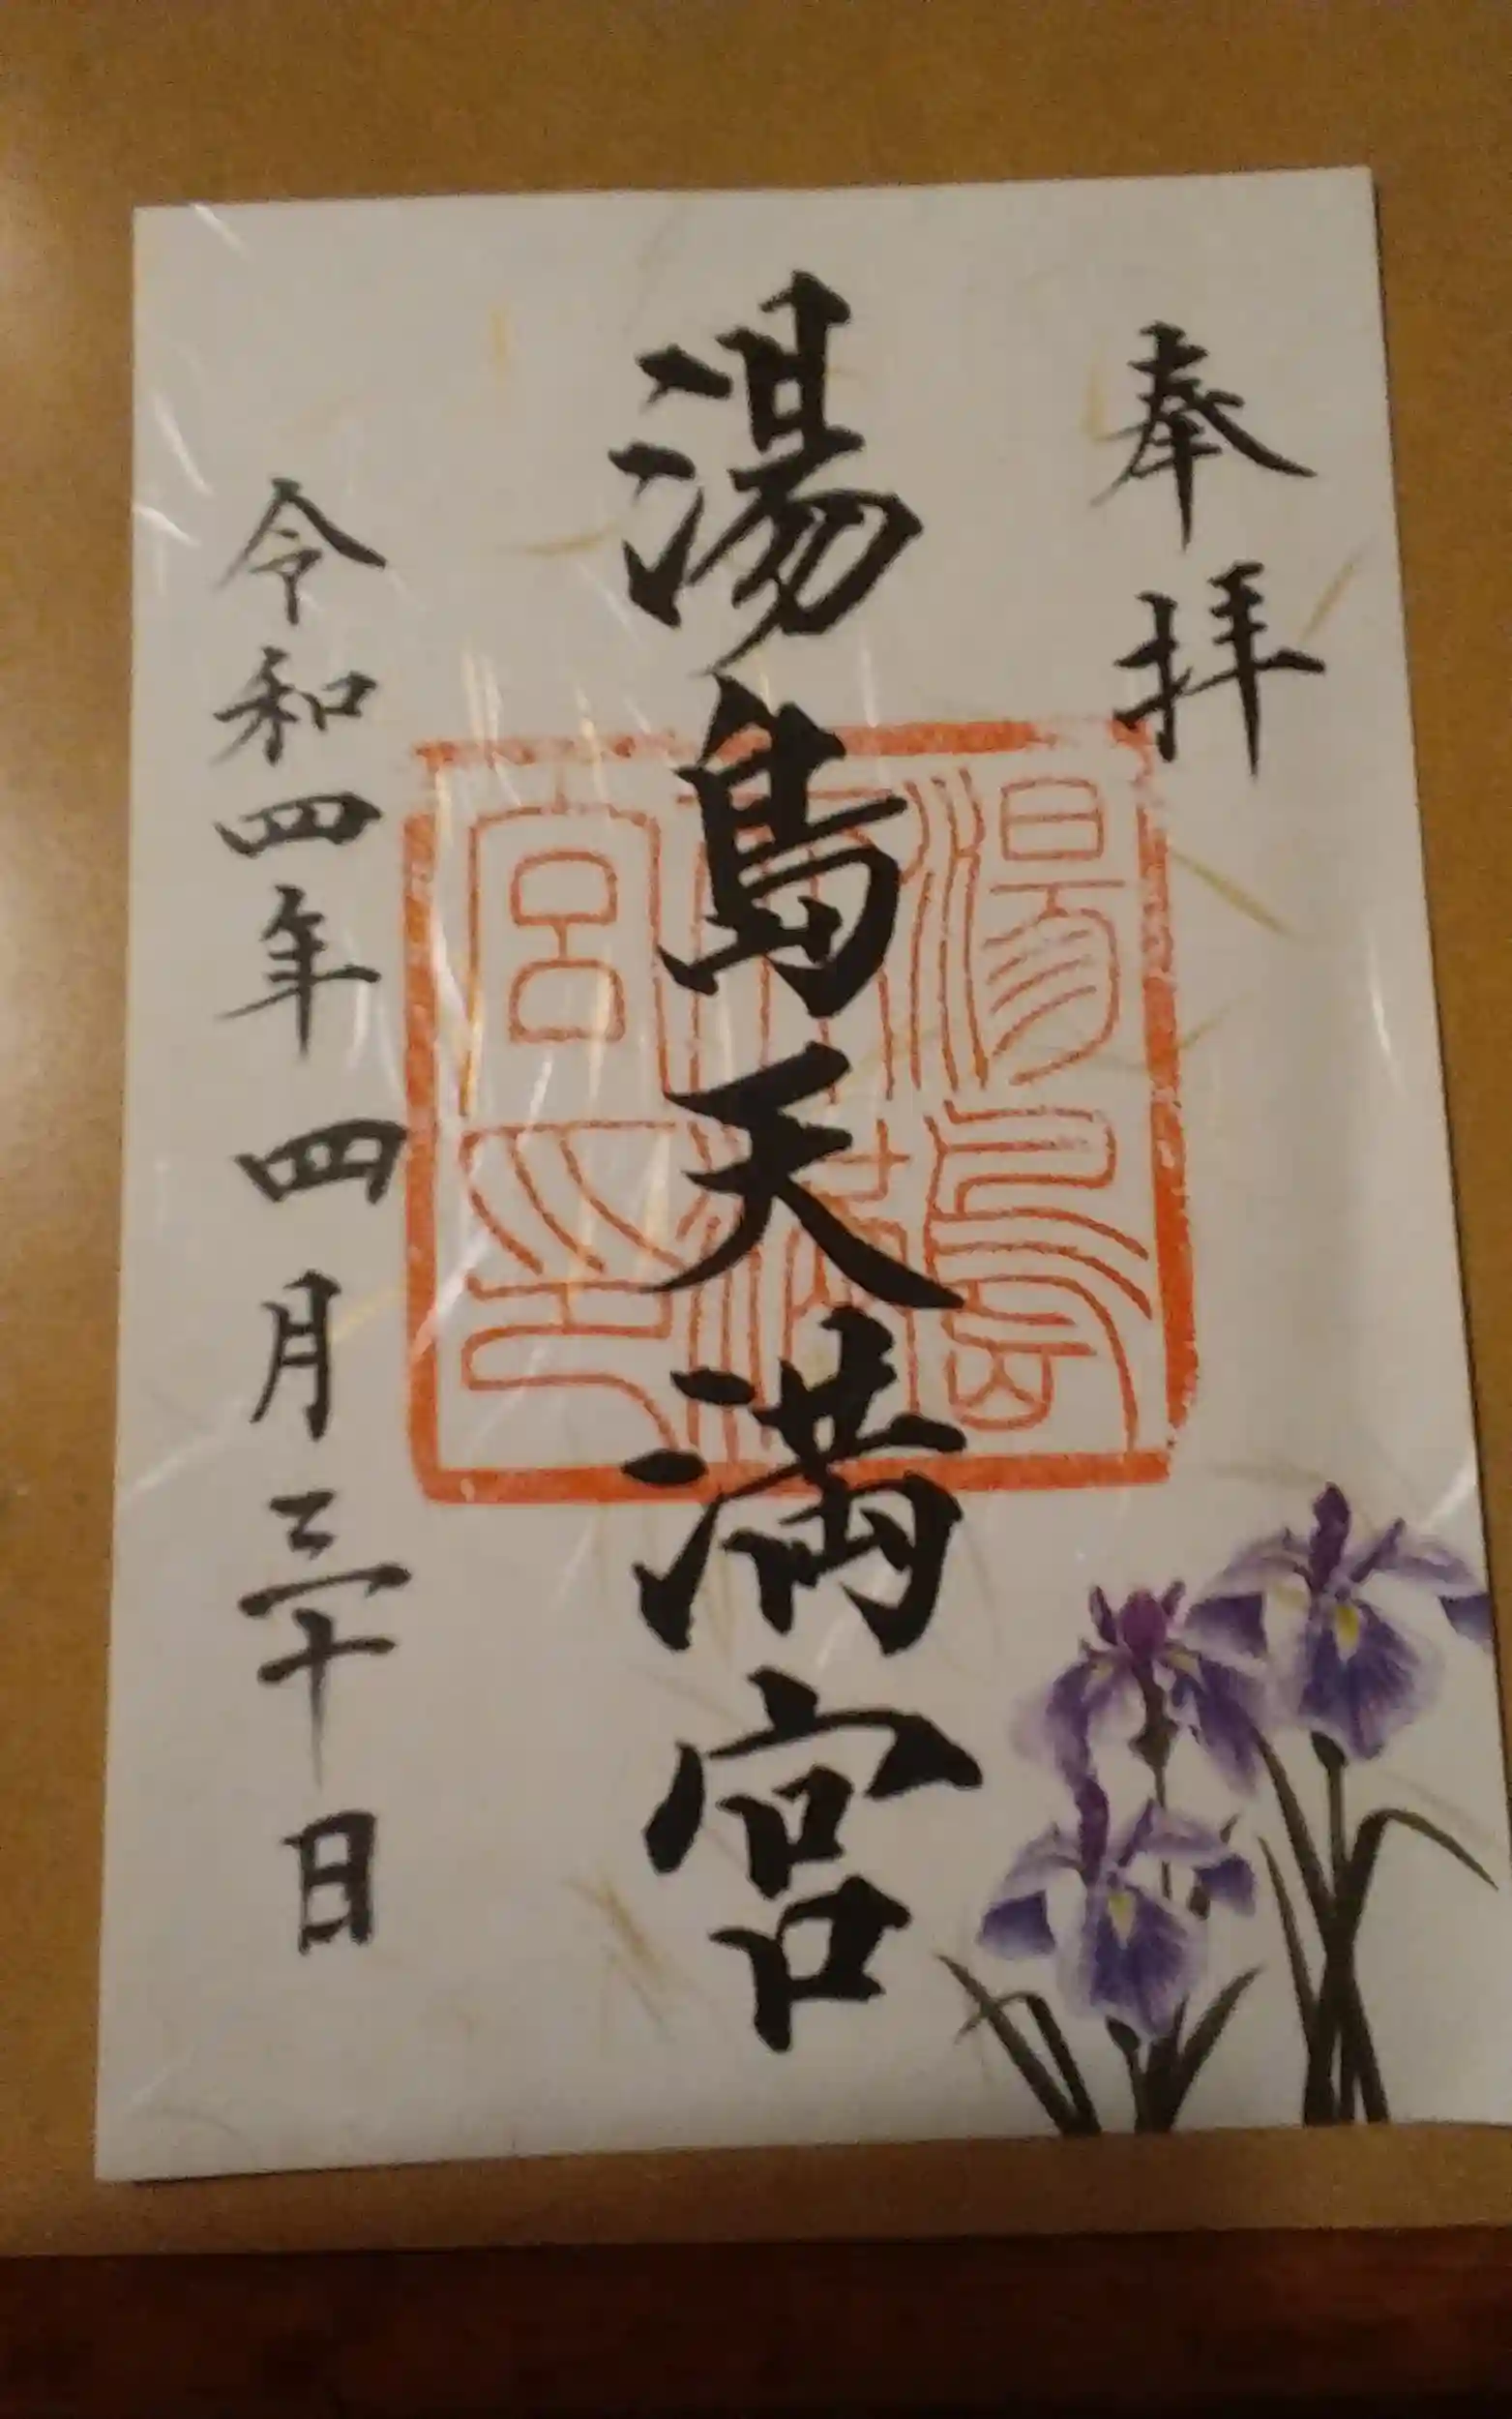 奉拝
湯島天満宮
湯島天満宮印
令和四年四月三十日